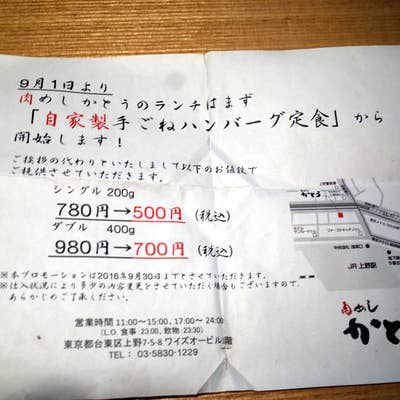 9月1日より
肉めしかとうのランチはまず
「自家製手ごねハンバーグ定食」から
開始します!
ご挨拶の代わりといたしまして以下のお値段で
ご提供させていただきます。
シングル 200g
780円→500円(税込)
ダブル 400g
980円→700円(税込)
※本プロモーションは2016年9月30日までとさせていただきます。
※仕入状況により多少の内容変更をさせていただく場合もございますので、
あらかじめご了承ください。
営業時間 11:00〜15:00、17:00〜24:00
(L.O. 食事:23:00、飲物:23:30)
東京都台東区上野7-5-8 ワイズオービル1階
TEL: 03-5830-1229
かとう
JR 上野駅
肉めし
かとう